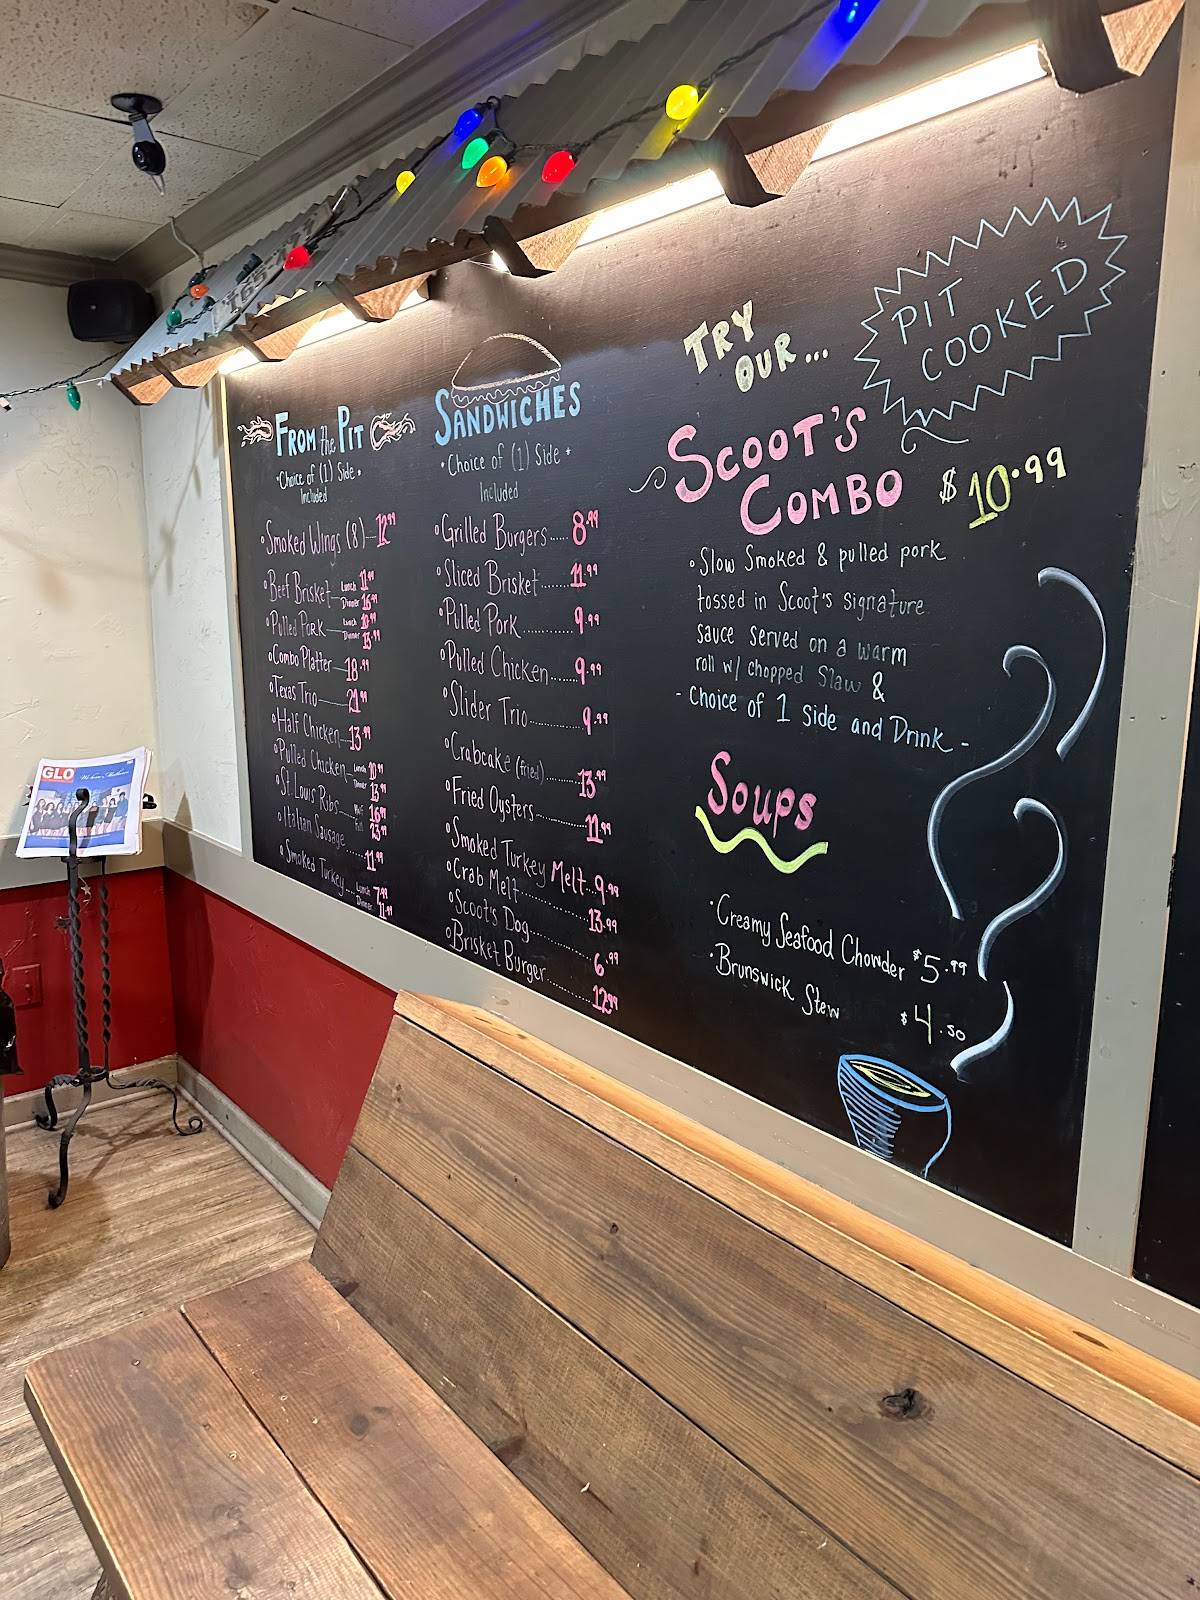 GLO
FROM the PIT
• Choice of (1) Side •
Included
• Smoked Wings (8) 12.99
• Beef Brisket Lunch 11.99
Dinner 16.99
• Pulled Pork Lunch 10.99
Dinner 15.99
• Combo Platter 18.99
• Texas Trio 21.99
• Half Chicken 13.99
• Pulled Chicken Lunch 10.99
Dinner 13.99
• St. Louis Ribs Half 16.99
Full 23.99
• Italian Sausage 11.99
• Smoked Turkey Lunch 7.99
Dinner 11.99
SANDWICHES
• Choice of (1) Side •
Included
• Grilled Burgers...... 8.99
• Sliced Brisket........... 11.99
• Pulled Pork............ 9.99
• Pulled Chicken....... 9.99
• Slider Trio............ 9.99
• Crabcake (fried)....... 13.99
• Fried Oysters............ 11.99
• Smoked Turkey Melt... 9.99
• Crab Melt............ 13.99
• Scoot's Dog............ 6.99
• Brisket Burger.......... 12.99
TRY
OUR...
PIT
COOKED
SCOOT'S
COMBO $10.99
• Slow Smoked & pulled pork
tossed in Scoot's signature
sauce served on a warm
roll w/ chopped Slaw &
- Choice of 1 Side and Drink -
Soups
• Creamy Seafood Chowder $5.99
• Brunswick Stew $4.50